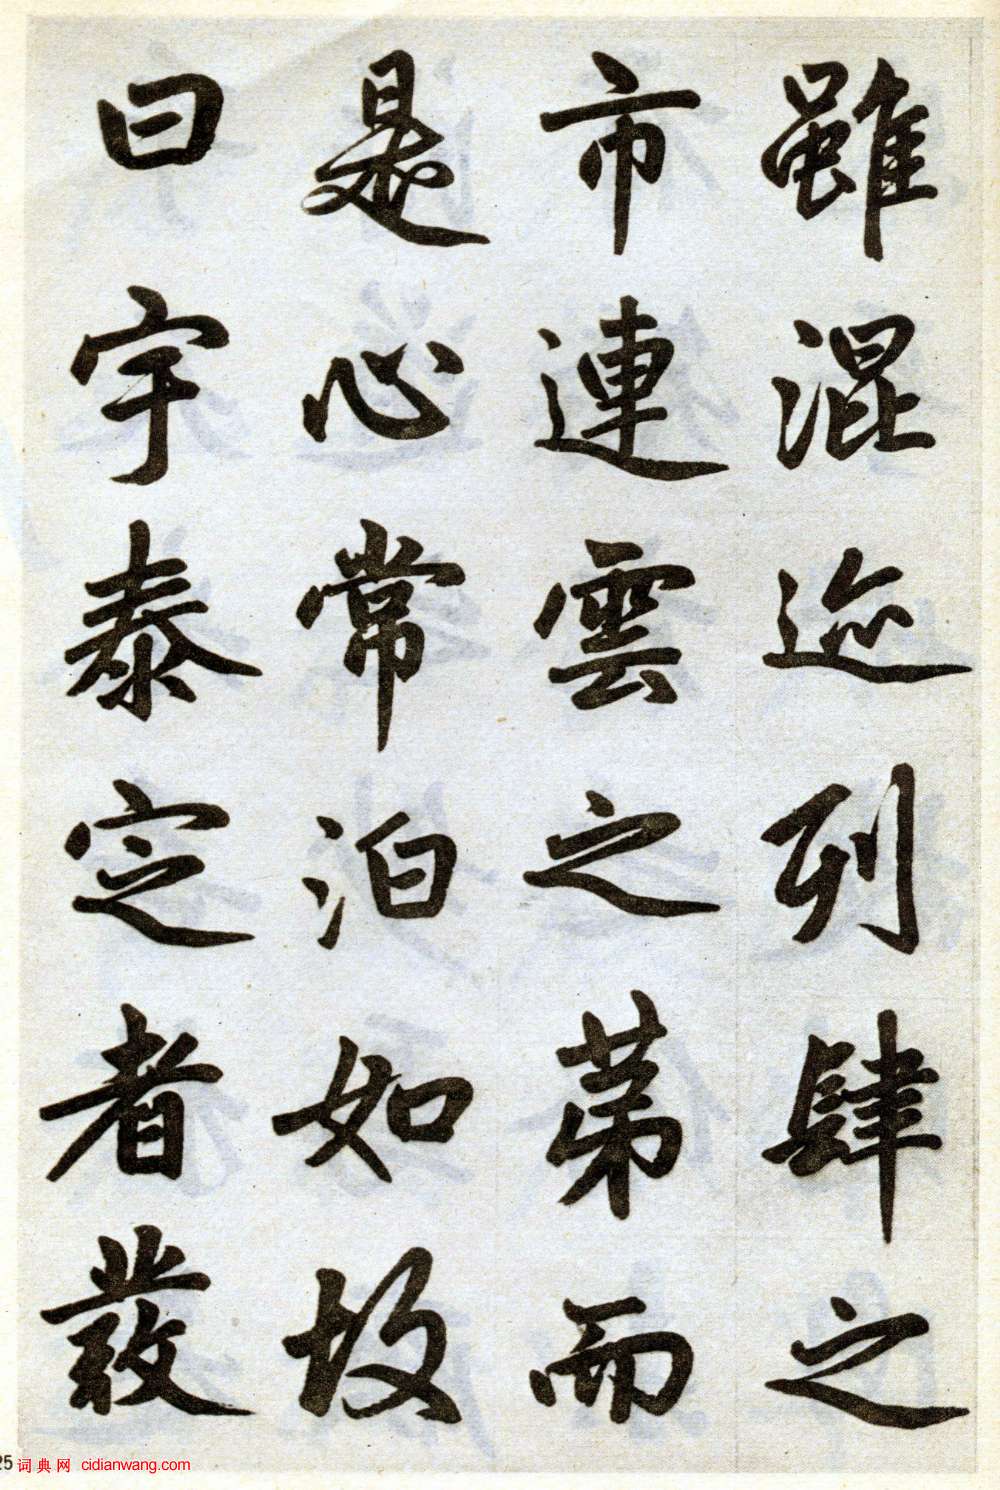 雖混迹列肆之
市連雲之第而
是心常泊如故
曰宇泰定者發
25 词典网 cidianwang.com